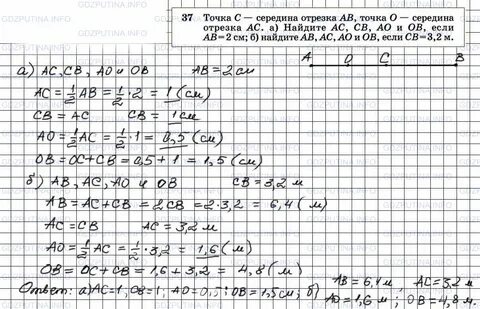 37 Точка C — середина отрезка AB, точка O — середина
отрезка AC. а) Найдите AC, CB, AO и OB, если
AB = 2 см; б) найдите AB, AC, AO и OB, если CB = 3,2 м.
A O C B
а) AC, CB, AO и OB AB = 2 см
AC = 1/2 AB = 1/2 · 2 = 1 (см)
CB = AC CB = 1 см
AO = 1/2 AC = 1/2 · 1 = 0,5 (см)
OB = OC + CB = 0,5 + 1 = 1,5 (см)
б) AB, AC, AO и OB CB = 3,2 м
AB = AC + CB = 2CB = 2 · 3,2 = 6,4 (м)
AC = CB AC = 3,2 м
AO = 1/2 AC = 1/2 · 3,2 = 1,6 (м)
OB = OC + CB = 1,6 + 3,2 = 4,8 (м)
Ответ: а) AC = 1, CB = 1; AO = 0,5; OB = 1,5 см; б) AB = 6,4 м; AC = 3,2 м
AO = 1,6 м; OB = 4,8 м.